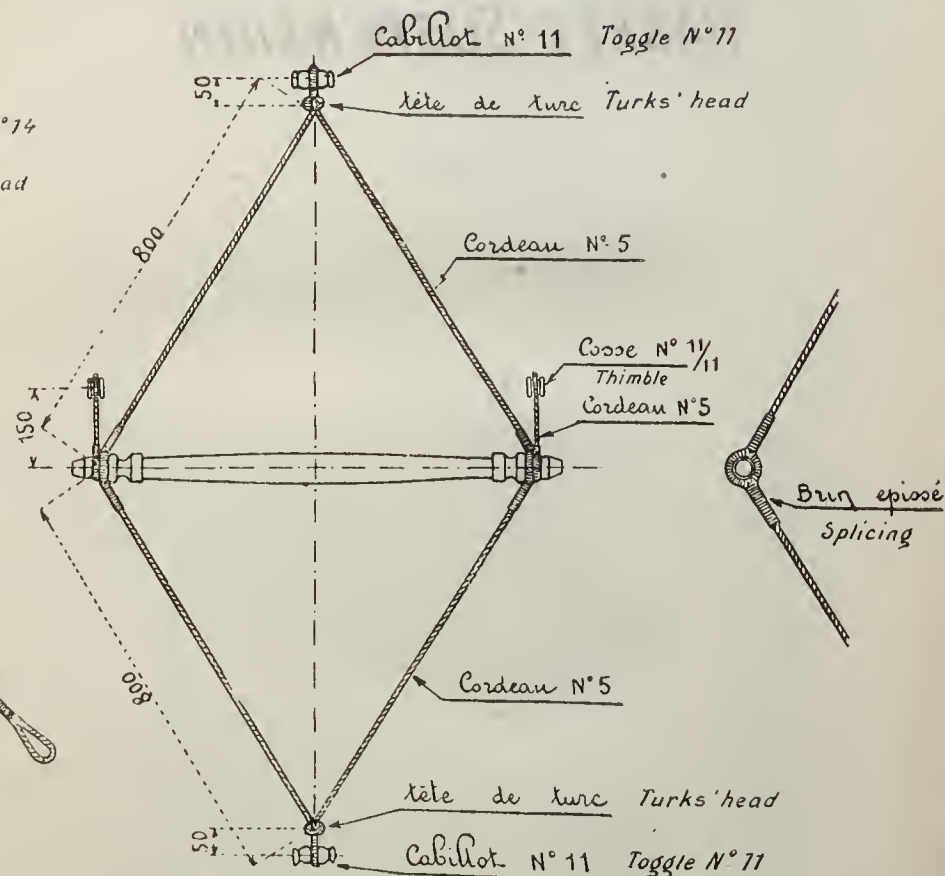 Cabillot N° 11 Toggle N° 11
50
tête de turc Turks' head
N° 14
ad
800
Cordeau N° 5
Cosse N° 11/11
Thimble
Cordeau N° 5
150
Brin epissé
Splicing
800
Cordeau N° 5
tête de turc Turks' head
50
Cabillot N° 11 Toggle N° 11